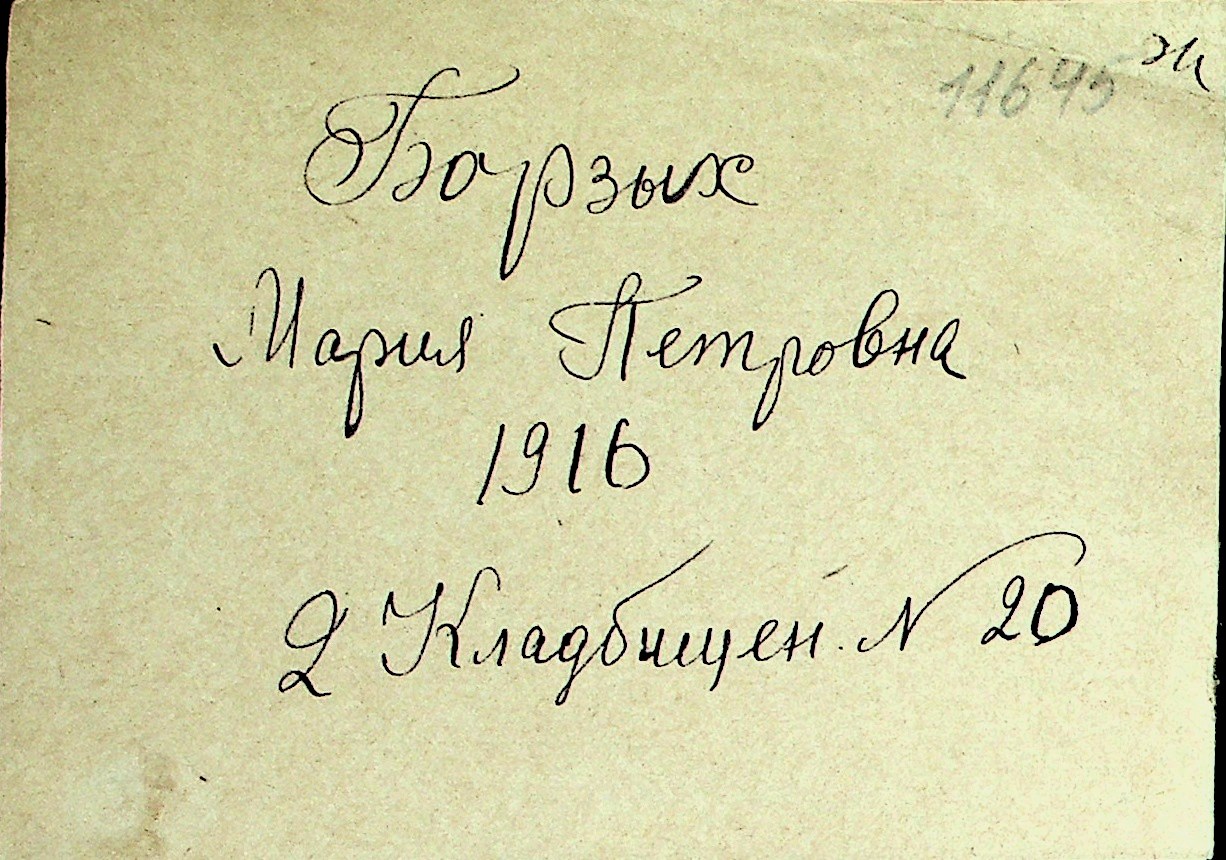 11645 ж
Борзых
Мария Петровна
1916
2 Кладбищен. N 20